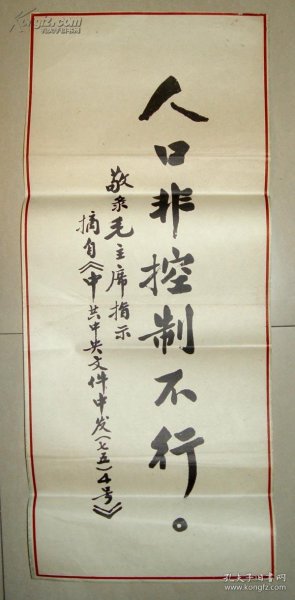 人口非控制不行。
敬录毛主席指示
摘自《中共中央文件中发(七五)4号》
孔夫子旧书网
www.kongfz.com